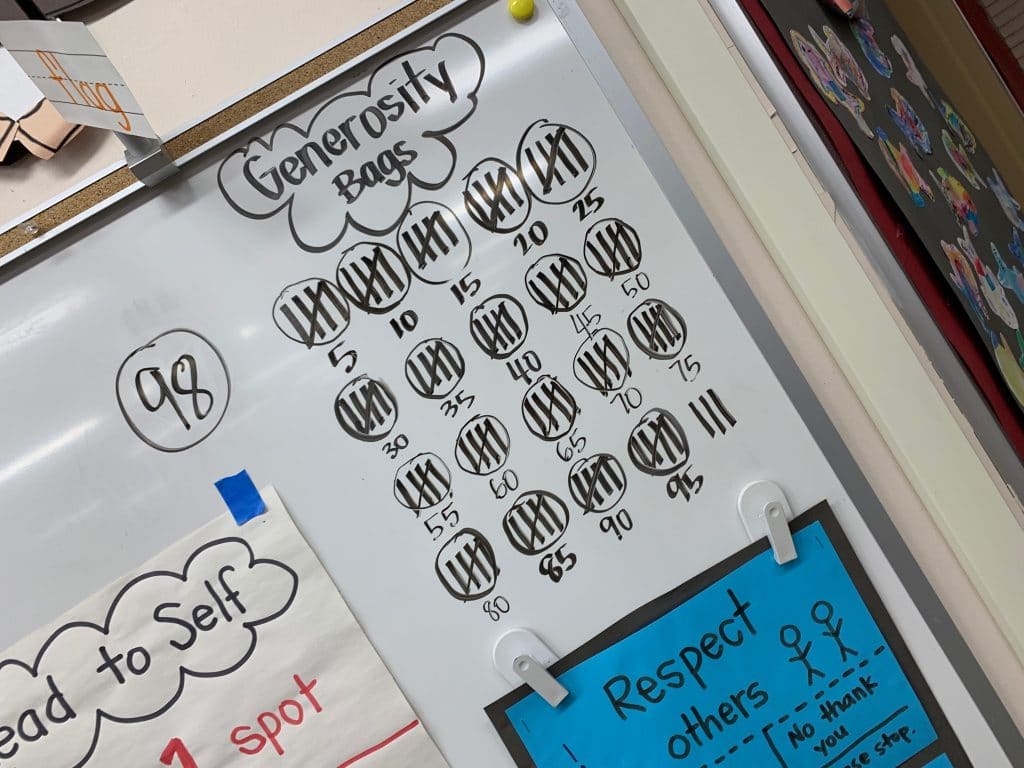 Generosity
Bags
5 10 15 20 25
30 35 40 45 50
55 60 65 70 75
80 85 90 95
98
to Self
1 spot
Respect
others
No thank
you
stop.